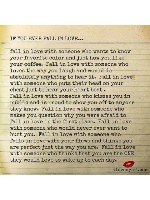 IF YOU EVER FALL IN LOVE...
Fall in love with someone who wants to know
your favorite color and just how you like
your coffee. Fall in love with someone who
loves the way you laugh and would do
absolutely anything to hear it. Fall in love
with someone who puts their head on your
chest just to hear your heart beat.
Fall in love with someone who kisses you in
public and is proud to show you off to anyone
they know. Fall in love with someone who
makes you question why you were afraid to
fall in love in the first place. Fall in love
with someone who would never ever want to
hurt you. Fall in love with someone who
falls in love with your flaws and thinks you
are perfect just the way you are. Fall in love
with someone who thinks that you are the ONE
they would love to wake up to each day.